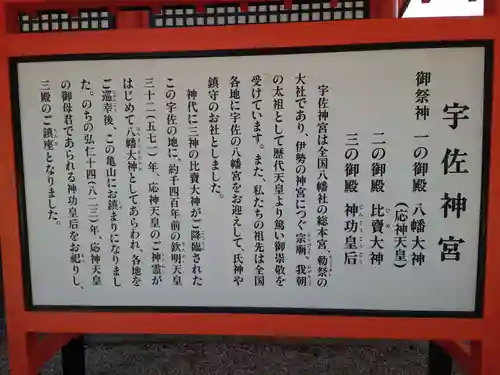 宇佐神宮
御祭神 一の御殿 八幡大神
(応神天皇)
二の御殿 比賣大神
三の御殿 神功皇后
宇佐神宮は全国八幡社の総本宮、勅祭の
大社であり、伊勢の神宮につぐ宗廟、我朝
の太祖として歴代天皇より篤い御崇敬を
受けています。また、私たちの祖先は全国
各地に宇佐の八幡宮をお迎えして、氏神や
鎮守のお社としました。
神代に三神の比賣大神がご降臨された
この宇佐の地に、約千四百年前の欽明天皇
三十二(五七一)年、応神天皇のご神霊が
はじめて八幡大神としてあらわれ、各地を
ご巡幸後、この亀山にお鎮まりになりまし
た。のちの弘仁十四(八二三)年、応神天皇
の御母君であられる神功皇后をお祀りし、
三殿のご鎮座となりました。